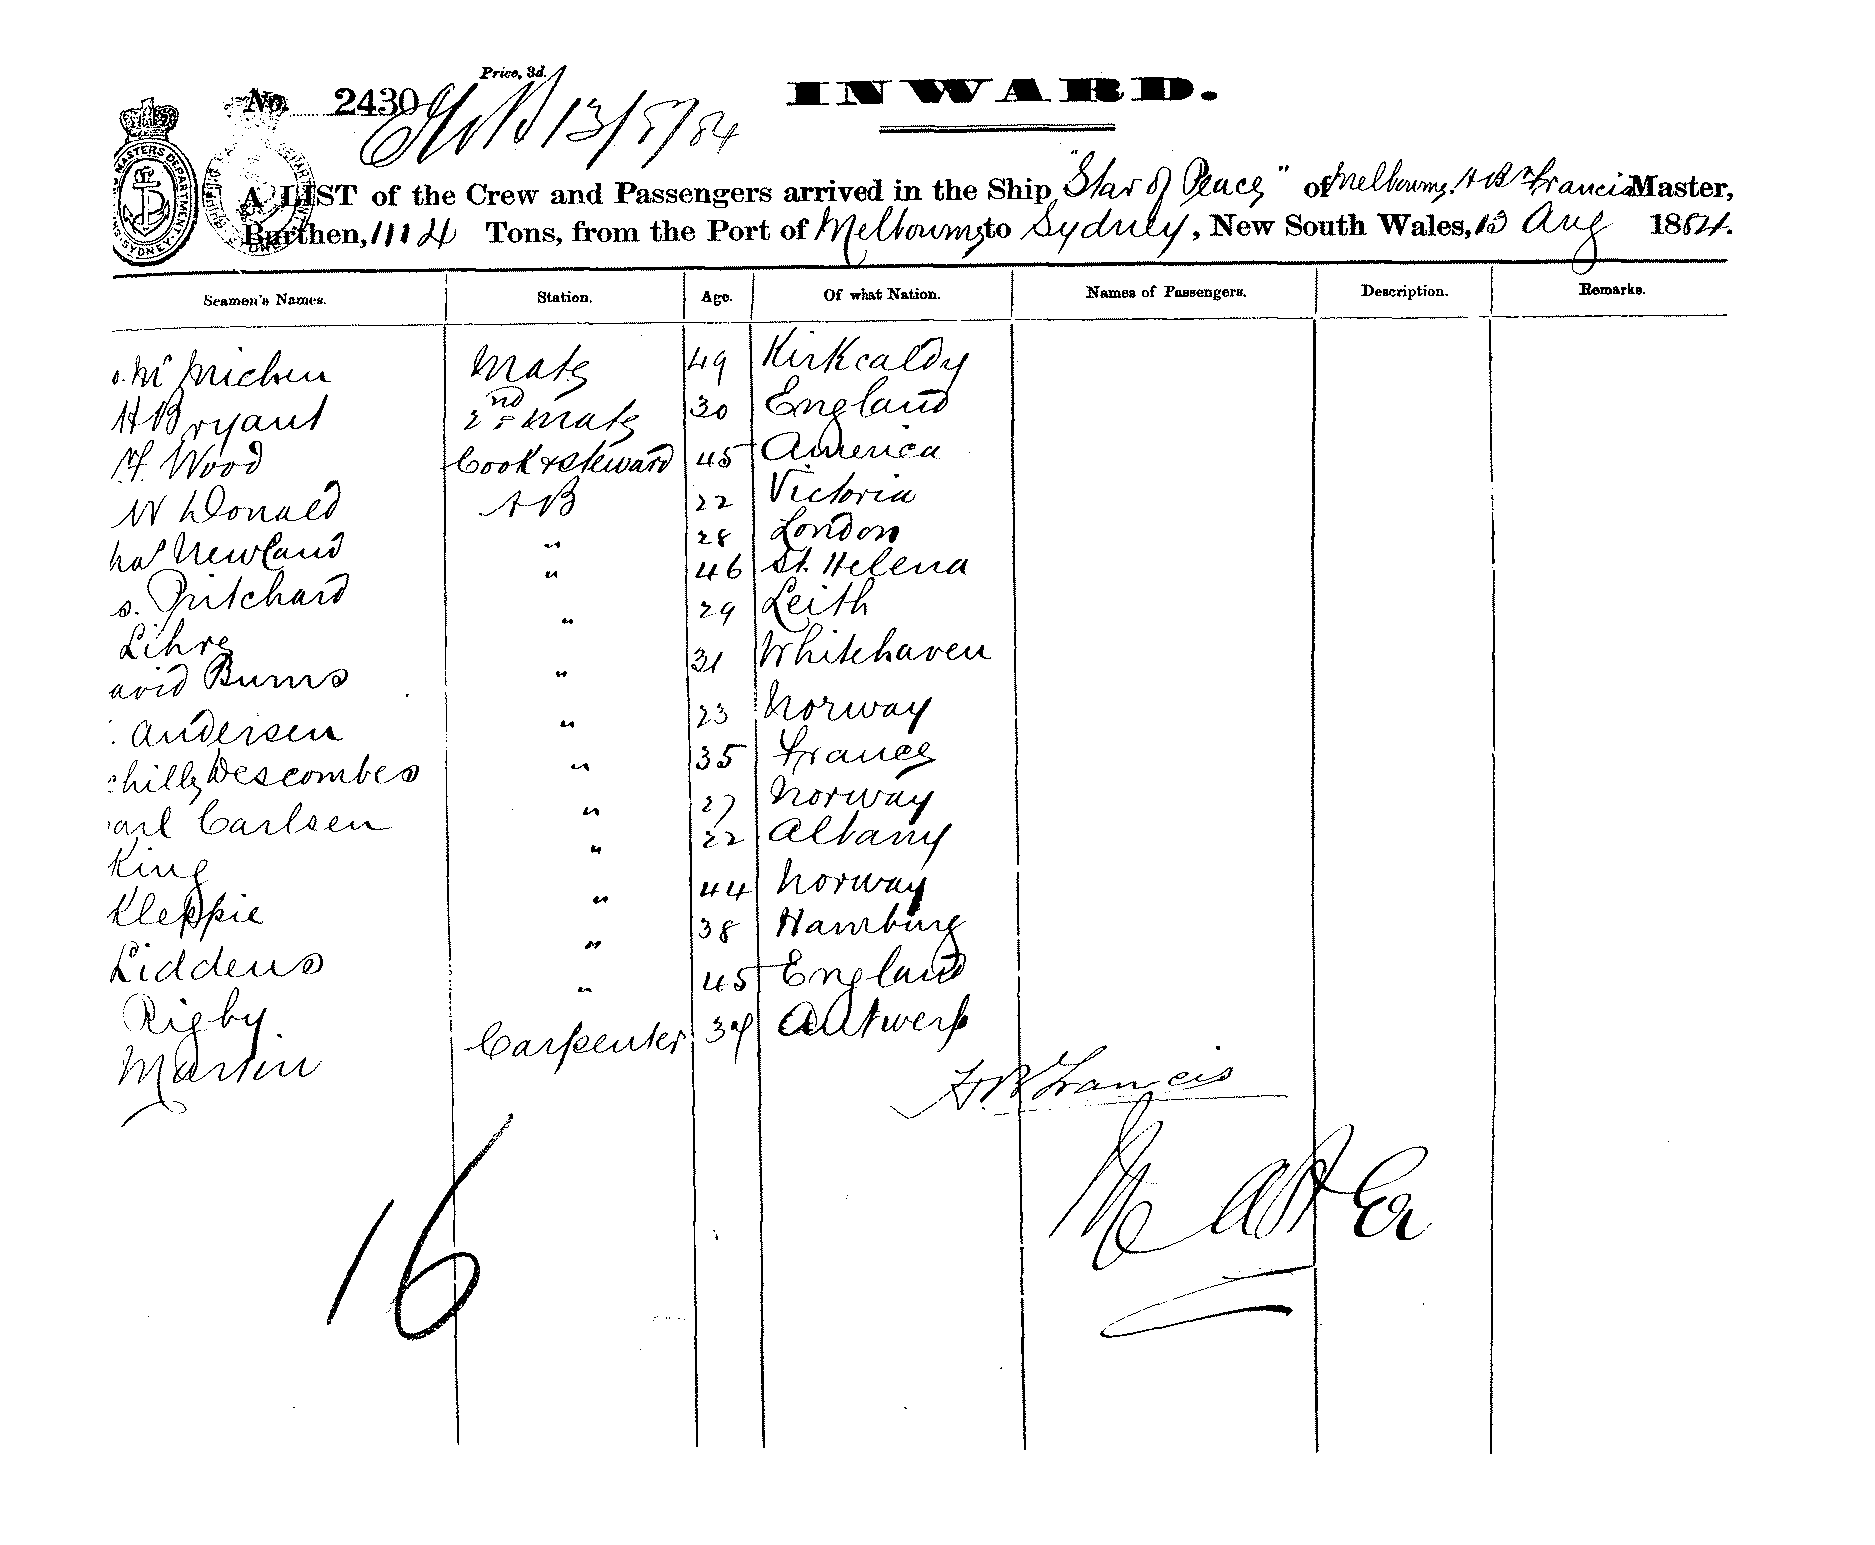 Price, 3d.
No. 2430
13/8/84
INWARD.
A LIST of the Crew and Passengers arrived in the Ship "Star of Peace" of Melbourne. H B Francis Master,
Burthen, 1114 Tons, from the Port of Melbourne to Sydney, New South Wales, 13 Aug 1884.
Seamen's Names. Station. Age. Of what Nation. Names of Passengers. Description. Remarks.
Mate 49 Kirkcaldy
H Bryant 2nd Mate 30 England
Wood Cook & Steward 45 America
W Donald AB 22 Victoria
Newland " 28 London
s. Pritchard " 46 St. Helena
Lihre " 29 Leith
avid Burns " 31 Whitehaven
Andersen " 23 Norway
Descombes " 35 France
arl Carlsen " 27 Norway
King " 22 Albany
Kleppie " 44 Norway
Liddens " 38 Hamburg
Rigby " 45 England
Martin Carpenter 39 Antwerp
H B Francis
Master
16